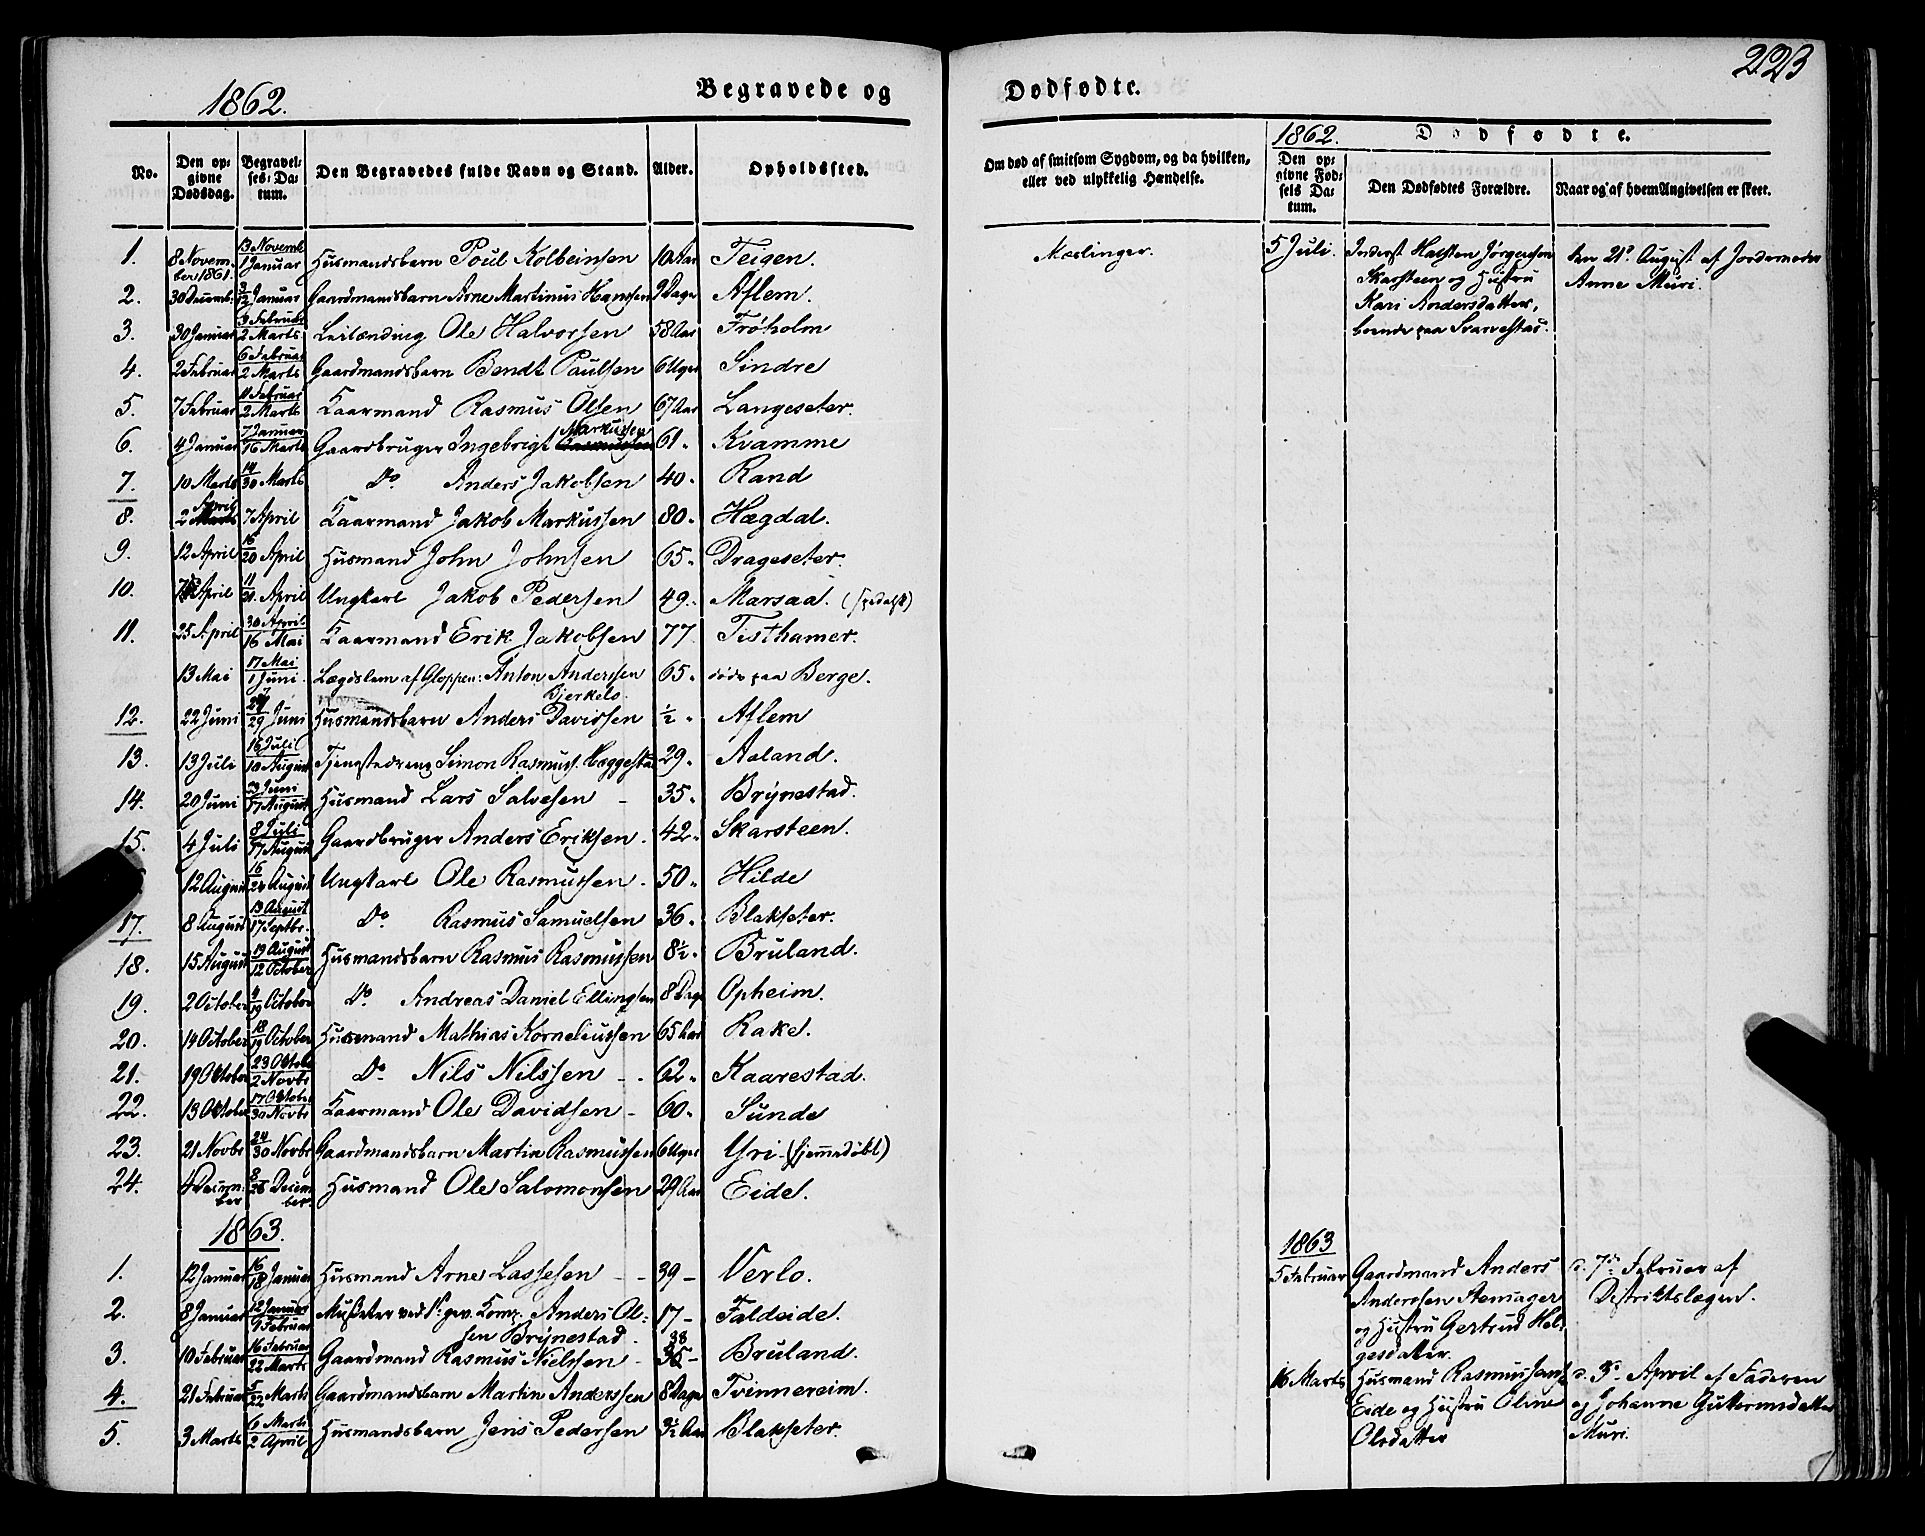 223
1862.
Begravede og
Dødfødte.
No.
Den opgivne Dødsdag.
Begravelses-Datum.
Den Begravedes fulde Navn og Stand.
Alder.
Opholdssted.
Om død af smitsom Sygdom, og da hvilken, eller ved ulykkelig Hændelse.
1862.
Dødfødte.
Den opgivne Fødsels Datum.
Den Dødfødtes Forældre.
Naar og af hvem Angivelsen er skeet.
1. 8 November 1861. 13 Novemb 1 Januar Husmandsbarn Poul Kolbeinsen 10 Aar Teigen. Mæslinger.
2. 30 Decemb. 3/12 Januar Gaardmandsbarn Arne Martinus Hanssen 9 Dage Aflem.
3. 30 Januar Februar 2 Marts Leilænding Ole Halvorssen 58 Aar Frøholm
4. 2 Februar 6 Februar 2 Marts Gaardmandsbarn Bendt Paulsen 6 Uger Sindre
5. 7 Februar 11 Februar 2 Marts Kaarmand Rasmus Olsen 67 Aar Langeseter.
6. 4 Januar 7 Januar 16 Marts Gaardbruger Ingebrigt Markussen 61 " Kvamme
7. 10 Marts 14/30 Marts Do Anders Jakobsen 40 " Rand
8. 2 April 7 April Kaarmand Jakob Markussen 80 " Hægdal.
9. 12 April 16/20 April Husmand John Johnsen 65 " Drageseter.
10. 7 April 11/21 April Ungkarl Jakob Pedersen 49 " Marsaa. (spedalsk)
11. 25 April 30 April 16 Mai Kaarmand Erik Jakobsen 77 Tisthamer.
13 Mai 17 Mai 1 Juni Lægdslem af Gloppen: Anton Anderssen Bjerkelo. 65 " døde paa Berge.
12. 22 Juni 27/29 Juni Husmandsbarn Anders Davidsen ½ " Aflem
13. 13 Juli 16 Juli 10 August Tjenestedreng Simon Rasmuss. Heggestad 29 " Aaland.
14. 20 Juni 23 Juni 17 August Husmand Lars Salvesen - 35 " Brynestad.
15. 4 Juli 8 Juli 17 August Gaardbruger Anders Eriksen. 42 " Skarsteen.
12 August 16/24 August Ungkarl Ole Rasmussen. 50 " Hilde
17. 8 August 13 August 17 Septbr. Do Rasmus Samuelsen 36 " Blakseter.
18. 15 August 19 August 12 October Husmandsbarn Rasmus Rasmussen 8½ " Bruland.
19. 2 October 4/19 October Do Andreas Daniel Ellingsen 8 Dage Opheim.
20. 14 October 18/19 October Husmand Mathias Korneliussen 65 Aar Rake.
21. 19 October 23 Oktob 2 Novbr Do Nils Nilssen - - 62 " Kaarestad.
22. 13 Oktober 17 Oktober 30 Novbr Kaarmand Ole Davidsen - 60 " Sunde
23. 21 Novbr 24/30 Novbr Gaardmandsbarn Martin Rasmussen 6 Uger Yri. (hjemmedøbt)
24. 4 December 8/26 December. Husmand Ole Salomonsen 29 Aar Eide.
1863.
1. 12 Januar 16/18 Januar Husmand Arne Lassesen - - 39 - Verlo.
2. 8 Januar 12 Januar 9 Februar Musketer ved Anders Olsen Brynestad. 17 - Faldeide.
3. 10 Februar 16 Februar 22 Marts Gaardmand Rasmus Nielssen - 38 Bruland.
4. 21 Februar 5/22 Marts Gaardmandsbarn Martin Anderssen 8 Dage Tvinnereim.
5. 3 Marts 6 Marts 2 April Husmandsbarn Jens Pedersen 3½ Aar Blakseter.
5 Juli. Inderst Halsten Jørgenssen
Skarsteen og Hustru
Kari Andersdatter,
boende paa Svarvestad.
den 21de August af Jordemoder
Anne Muri.
1863
5 Februar Gaardmand Anders
Anderssen Aemager
og Hustru Gertrud Helgesdatter.
d. 7de Februar af
Destriktslægen.
16 Marts Husmand Rasmus
Eide og Hustru Oline
Olsdatter
d. 3 April af Faderen
og Johanne Guttormsdatter
Muri.